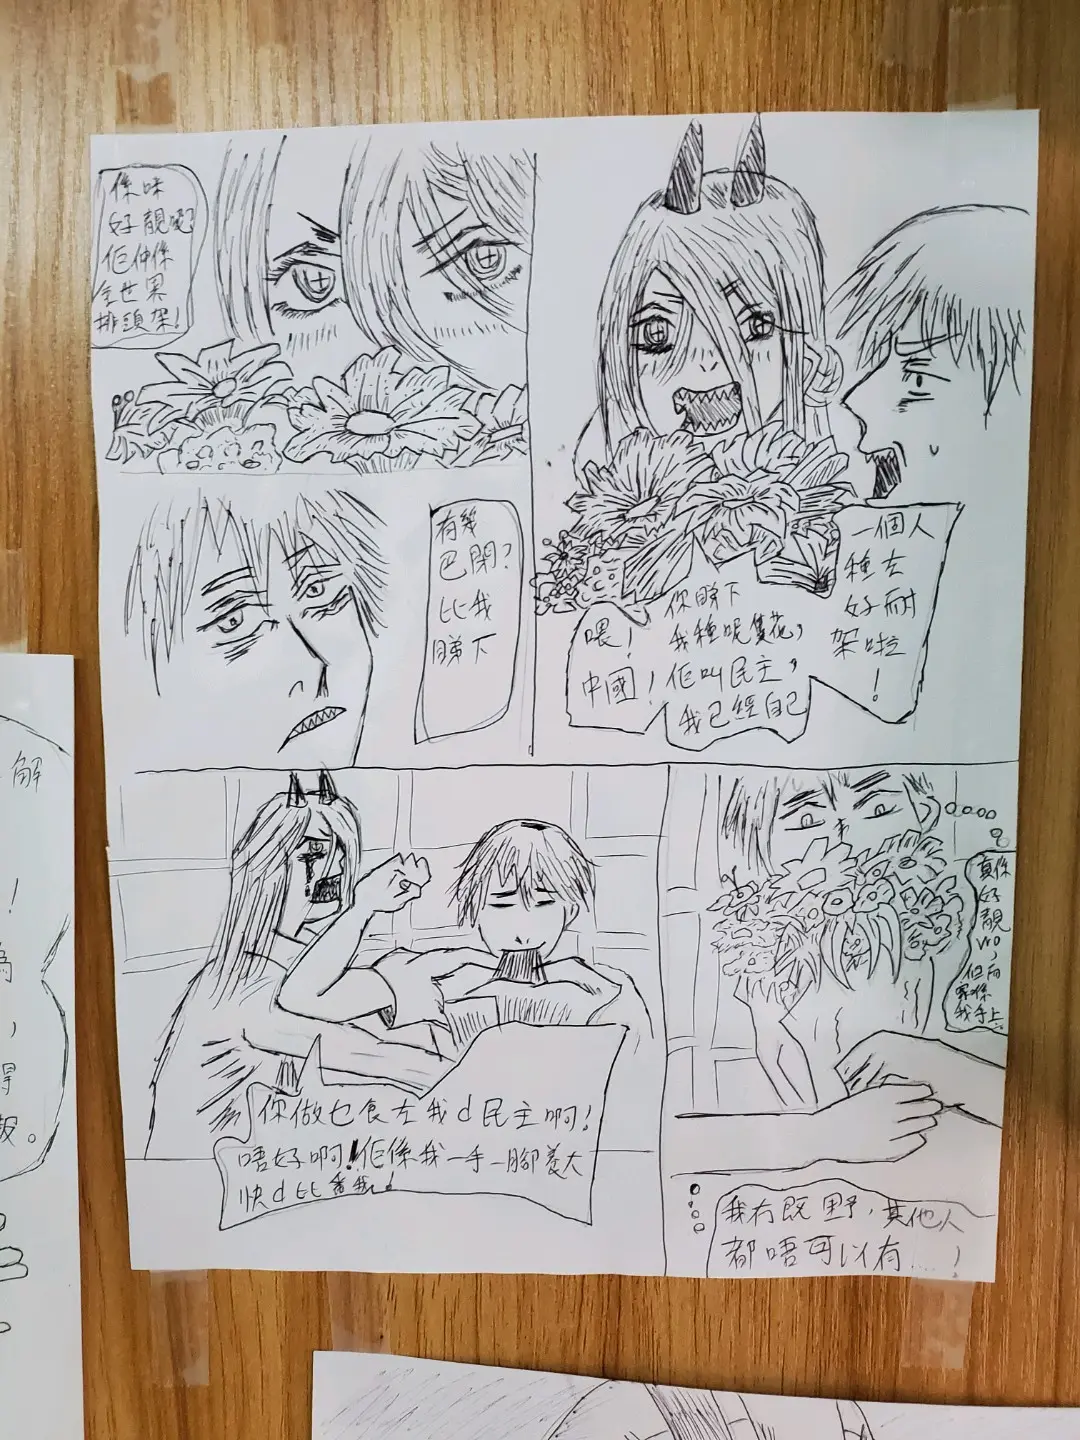 喂!
中國!
你睇下
我種呢隻花,
佢叫民主,
我已經自己
一個人
種左
好耐
架啦
!
係咪
好靚呢?
佢仲係
全世界
排頭架!
有幾
巴閉?
比我
睇下
你做乜食左我d民主啊!
唔好啊!佢係我一手一腳養大
快d比番我!
真係
好靚
wo,
但而
家係
我手上
我冇既野,其他人
都唔可以有....!
解
!
為
,
得
報。